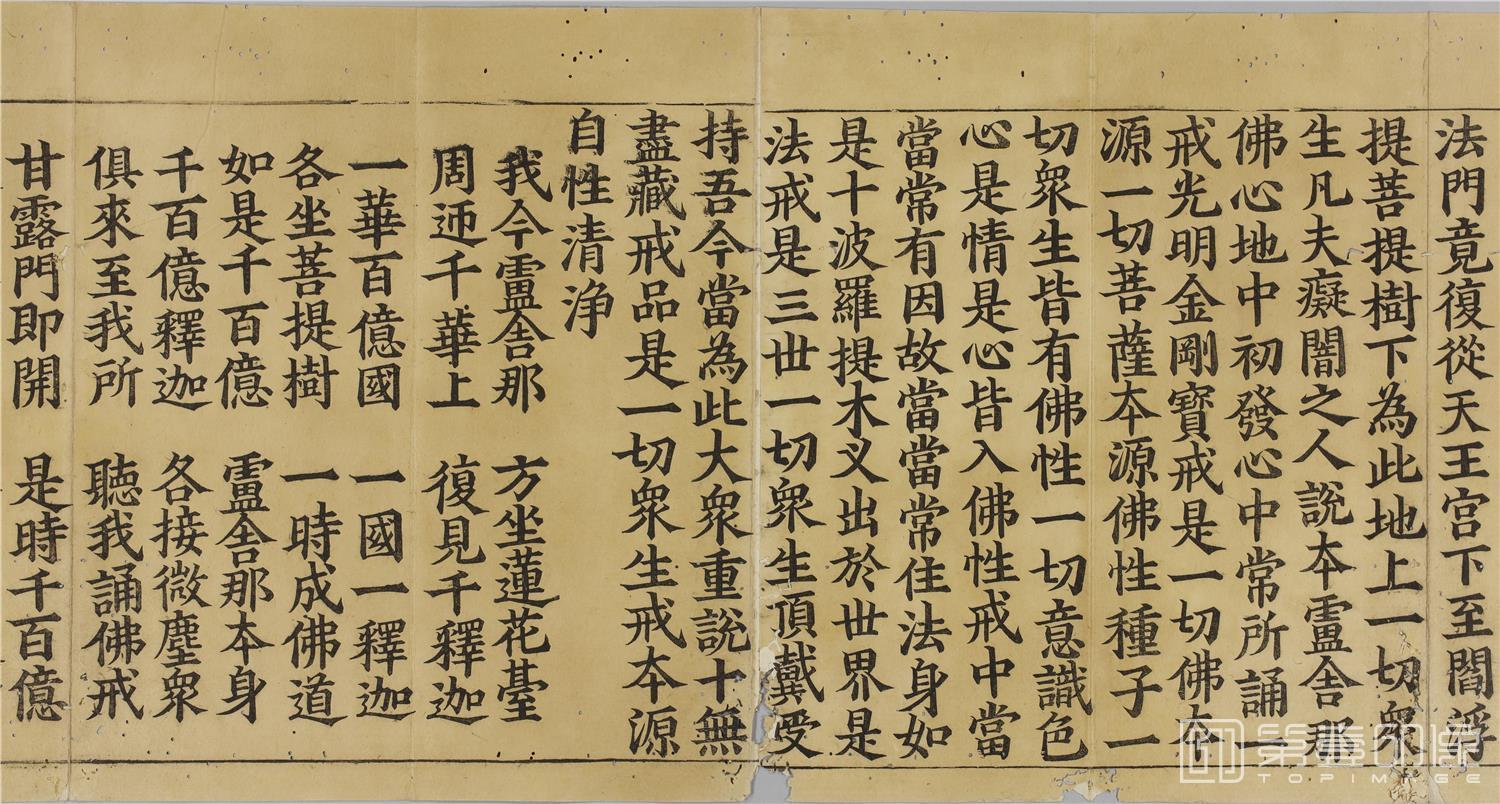 法門竟復從天王宮下至閻浮
提菩提樹下為此地上一切衆
生凡夫癡闇之人說本盧舍那
佛心地中初發心中常所誦一
戒光明金剛寶戒是一切佛本
源一切菩薩本源佛性種子一
切衆生皆有佛性一切意識色
心是情是心皆入佛性戒中當
當常有因故當當常住法身如
是十波羅提木义出於世界是
法戒是三世一切衆生頂戴受
持吾今當為此大衆重說十無
盡藏戒品是一切衆生戒本源
自性清淨
我今盧舍那 方坐蓮花臺
周迊千華上 復見千釋迦
一華百億國 一國一釋迦
各坐菩提樹 一時成佛道
如是千百億 盧舍那本身
千百億釋迦 各接微塵衆
俱來至我所 聽我誦佛戒
甘露門即開 是時千百億
TOPIMAGE